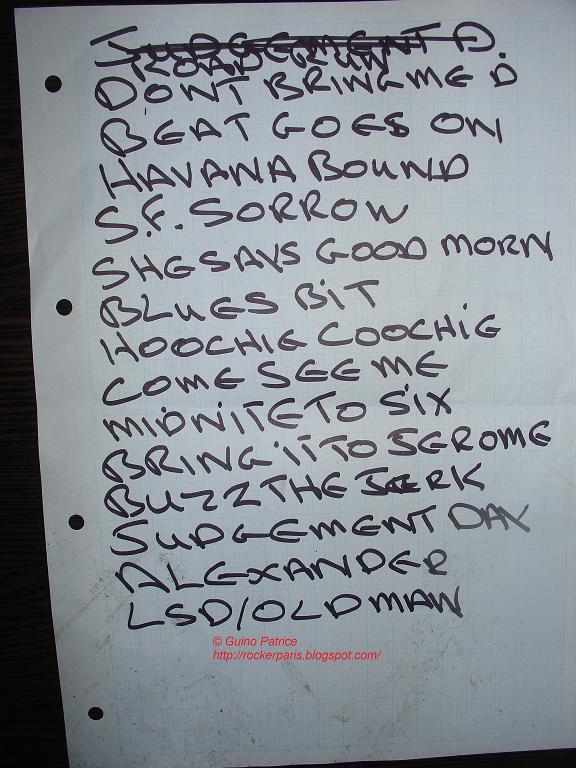 JUDGEMENT D.
ROAD RUN
DONT BRING ME D
BEAT GOES ON
HAVANA BOUND
S.F. SORROW
SHE SAYS GOOD MORN
BLUES BIT
HOOCHIE COOCHIE
COME SEE ME
MIDNITE TO SIX
BRING IT TO JEROME
BUZZ THE JERK
JUDGEMENT DAY
ALEXANDER
LSD/OLD MAN
© Guino Patrice
http://rockerparis.blogspot.com/